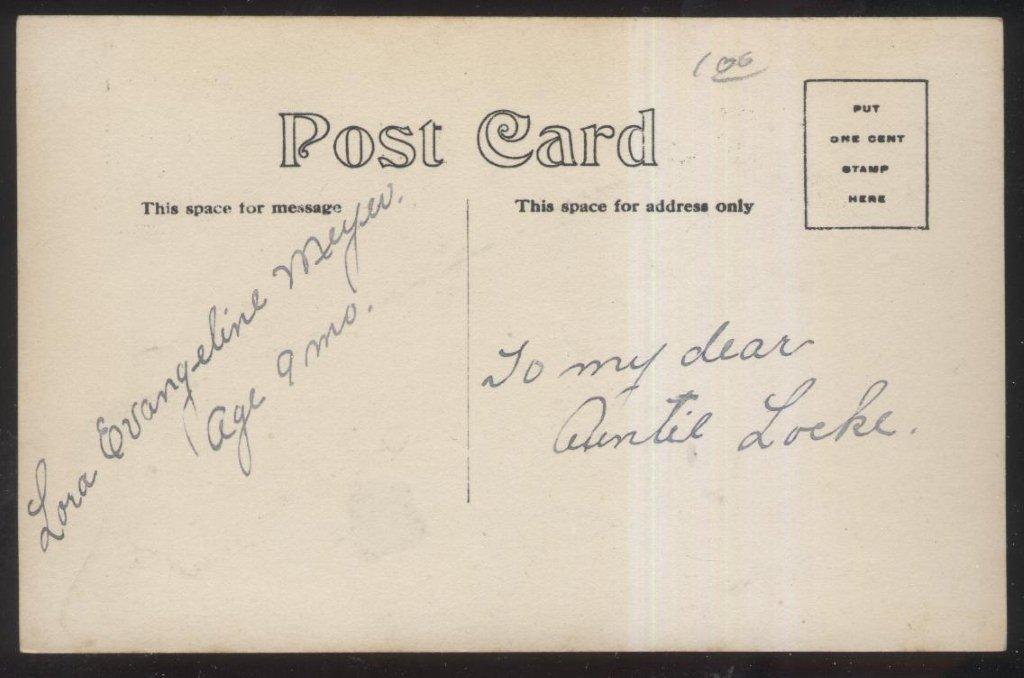 100
Post Card
PUT
ONE CENT
STAMP
HERE
This space for message
This space for address only
Lora Evangeline Meyer.
Age 9 mo.
To my dear
Auntie Locke.